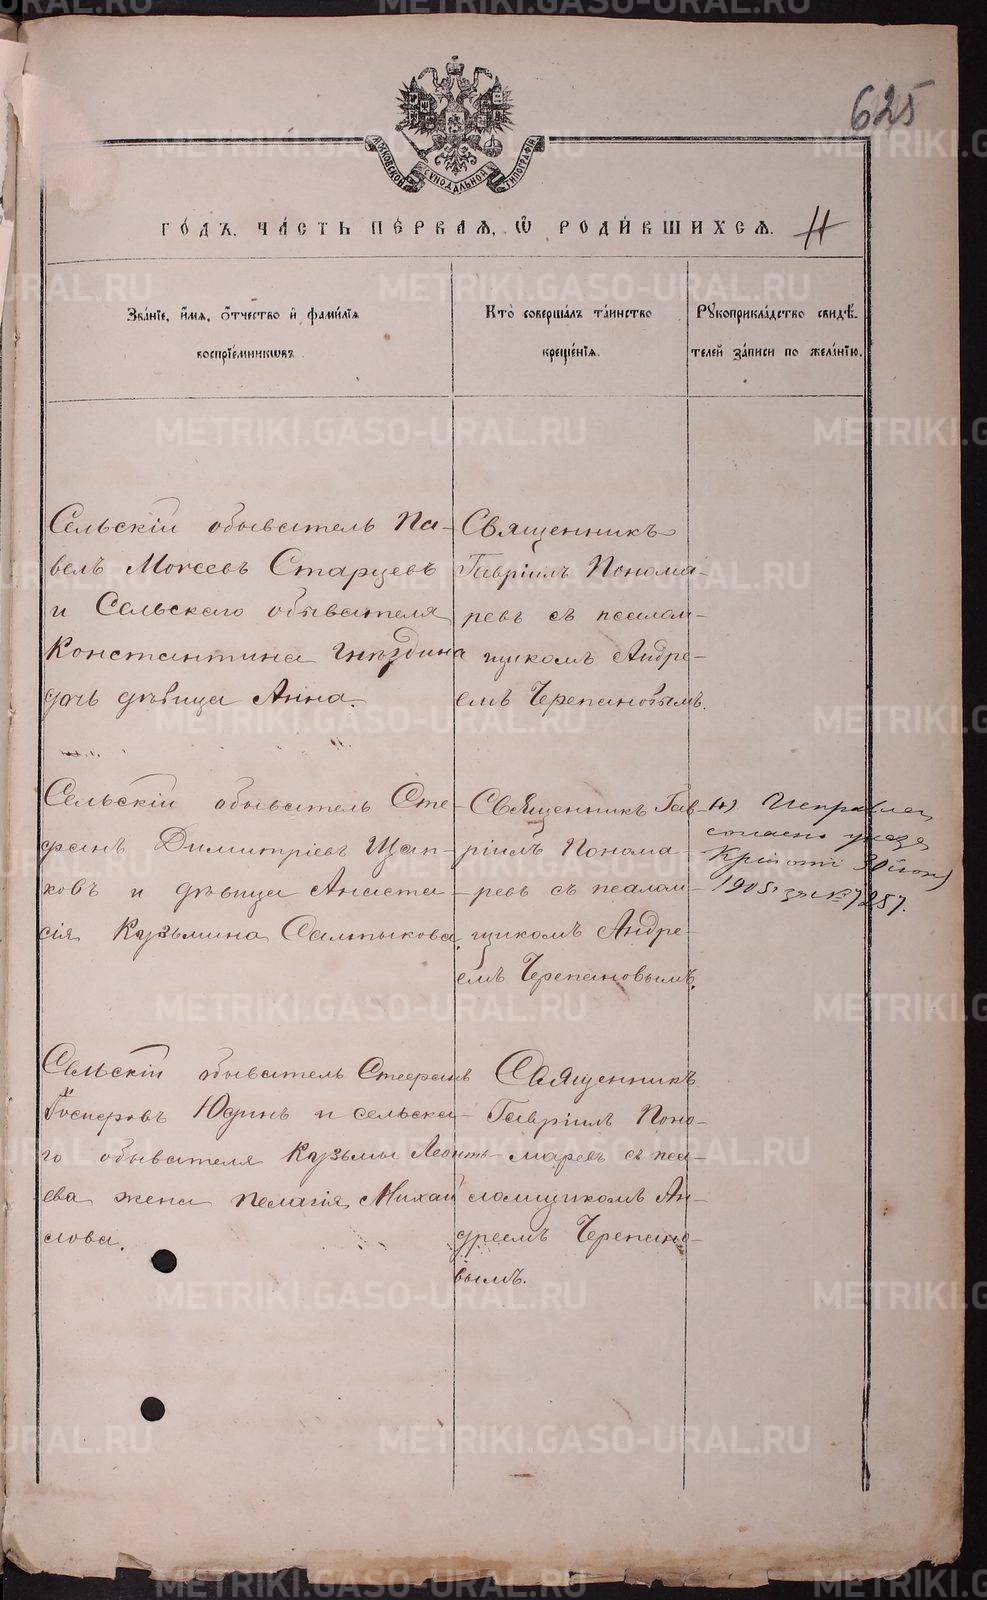 625
МОСКОВСКОЙ СѴНОДАЛЬНОЙ ТИПОГРАФІИ
ГО́ДЪ. ЧА́СТЬ ПЕ́РВАѦ, Ѽ РОДИ́ВШИХСѦ. 11
Зва́нїе, и҆́мѧ, ѻ҆́тчество и҆ фами́лїѧ
воспрїе́мникѡвъ.
Кто̀ соверша́лъ та́инство
креще́нїѧ.
Рꙋкоприкла́дство свидѣ́-
телей за́писи по жела́нїю.
Сельскій обыватель Па-
велъ Моисеевъ Старцевъ
и Сельскаго обывателя
Константина Гнѣздина
дочь дѣвица Анна.
Священникъ
Гавріилъ Понома-
ревъ съ псалом-
щикомъ Андре-
емъ Черепановымъ.
Сельскій обыватель Сте-
фанъ Димитріевъ Щап-
ковъ и дѣвица Анаста-
сія Кузьмина Салтыкова.
Священникъ Гав-
ріилъ Понома-
ревъ съ псалом-
щикомъ Андре-
емъ Черепановымъ.
согласно указа
1905 за № 7257.
Сельскій обыватель Стефанъ
Юдинъ и сельска-
го обывателя Кузьмы Леонть-
ева жена Пелагія Михай
лова.
Священникъ
Гавріилъ Поно-
маревъ съ пса-
ломщикомъ Ан-
дреемъ Черепано-
вымъ.
METRIKI.GASO-URAL.RU